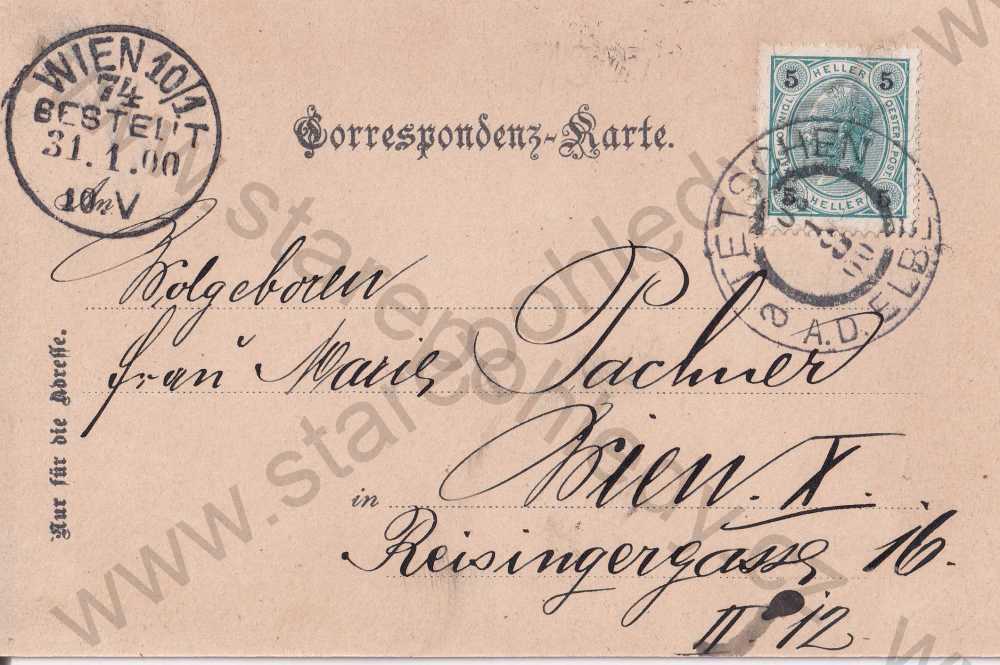 WIEN 10/1
74
BESTELLT
31.1.00
10.V
Correspondenz-Karte.
5 HELLER 5
KAIS. KÖNIGL. OESTERR. POST.
5 HELLER 5
TETSCHEN
a A.D. ELBE
An
Wolgeboren
frau Marie Pachner
in Wien. X.
Reisingergasse 16.
II. 12.
Nur für die Adresse.
www.starepohledy.cz
www.starepohledy.cz